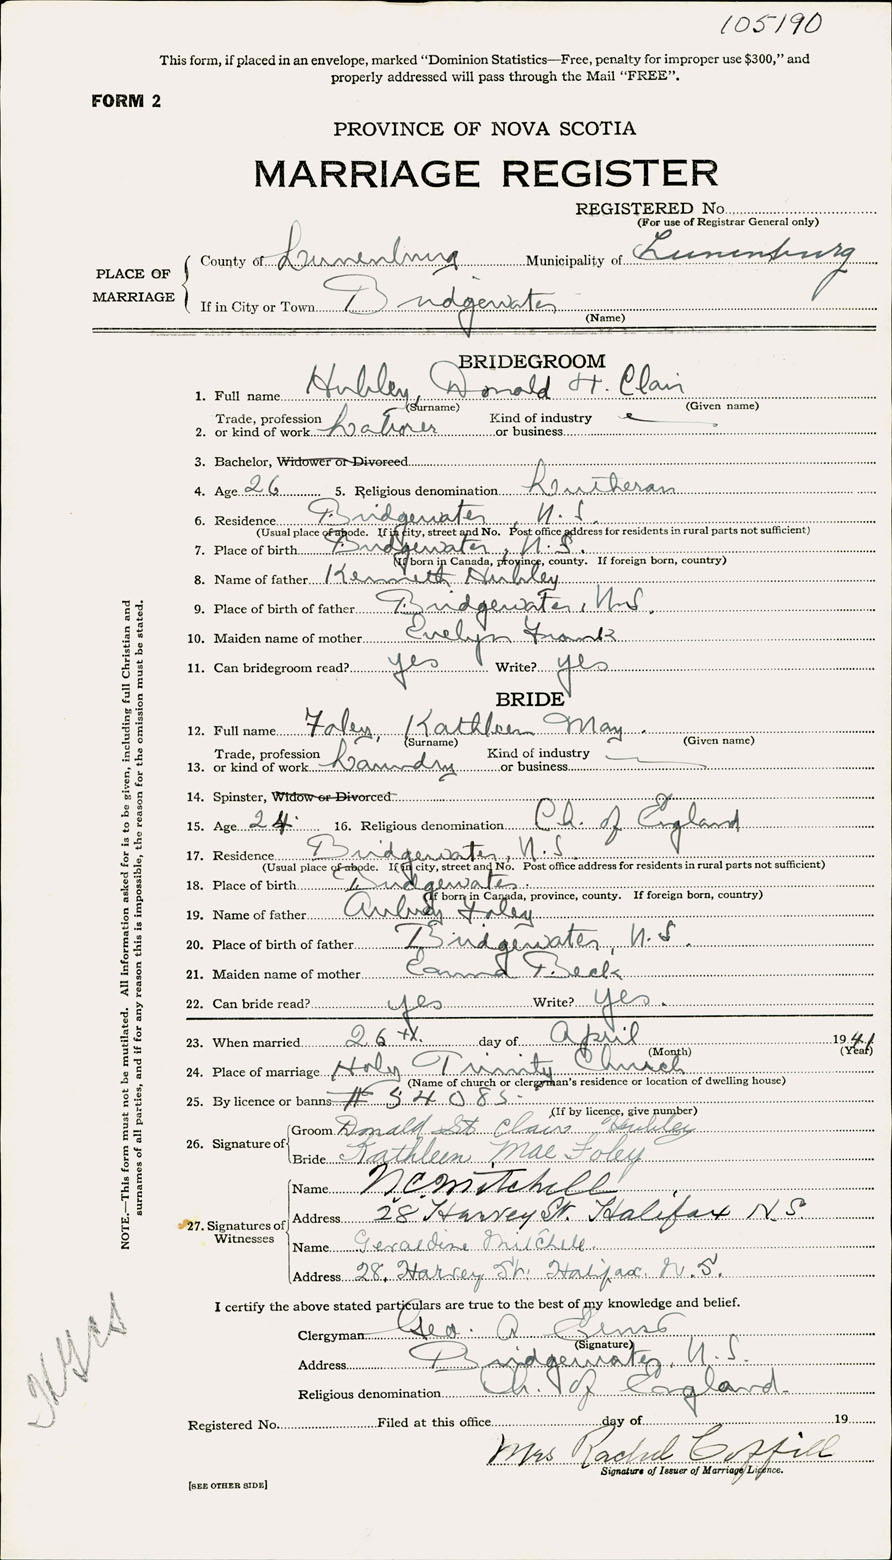 105190
This form, if placed in an envelope, marked "Dominion Statistics—Free, penalty for improper use $300," and
properly addressed will pass through the Mail "FREE".
FORM 2
PROVINCE OF NOVA SCOTIA
MARRIAGE REGISTER
REGISTERED No.
(For use of Registrar General only)
PLACE OF MARRIAGE
County of Lunenburg Municipality of Lunenburg
If in City or Town Bridgewater
(Name)
BRIDEGROOM
1. Full name Hubley, Donald St. Clair
(Surname) (Given name)
2. Trade, profession or kind of work Labourer Kind of industry or business
3. Bachelor, Widower or Divorced
4. Age 26 5. Religious denomination Lutheran
6. Residence Bridgewater, N.S.
(Usual place of abode. If in city, street and No. Post office address for residents in rural parts not sufficient)
7. Place of birth Bridgewater, N.S.
(If born in Canada, province, county. If foreign born, country)
8. Name of father Kenneth Hubley
9. Place of birth of father Bridgewater, N.S.
10. Maiden name of mother Evelyn Frank
11. Can bridegroom read? yes Write? yes
BRIDE
12. Full name Foley, Kathleen May.
(Surname) (Given name)
13. Trade, profession or kind of work Laundry Kind of industry or business
14. Spinster, Widow or Divorced
15. Age 24 16. Religious denomination Ch. of England
17. Residence Bridgewater, N.S.
(Usual place of abode. If in city, street and No. Post office address for residents in rural parts not sufficient)
18. Place of birth Bridgewater.
(If born in Canada, province, county. If foreign born, country)
19. Name of father Aubrey Foley
20. Place of birth of father Bridgewater, N.S.
21. Maiden name of mother Beck
22. Can bride read? yes Write? yes.
23. When married 26th. day of April 1941
(Month) (Year)
24. Place of marriage Holy Trinity Church
(Name of church or clergyman's residence or location of dwelling house)
25. By licence or banns # 54085.
(If by licence, give number)
26. Signature of
Groom Donald St. Clair Hubley
Bride Kathleen Mae Foley
27. Signatures of Witnesses
Name N C Mitchell
Address 28 Harvey St. Halifax N.S.
Name Geraldine Mitchell.
Address 28. Harvey St. Halifax. N.S.
I certify the above stated particulars are true to the best of my knowledge and belief.
Clergyman Geo. A
(Signature)
Address Bridgewater, N.S.
Religious denomination Ch. of England.
Registered No. Filed at this office day of 19
Mrs Rachel
Signature of Issuer of Marriage Licence.
[SEE OTHER SIDE]
NOTE.—This form must not be mutilated. All information asked for is to be given, including full Christian and
surnames of all parties, and if for any reason this is impossible, the reason for the omission must be stated.